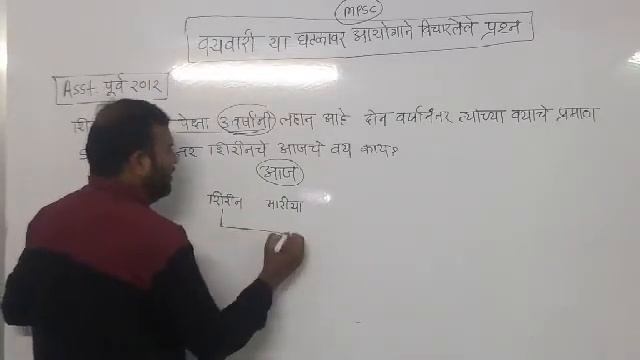 MPSC
वयवारी या घटकावर आयोगाने विचारलेले प्रश्न
Asst. पूर्व २०१२
पेक्षा ३ वर्षांनी लहान आहे दोन वर्षानंतर त्यांच्या वयाचे प्रमाण
शिरीनचे आजचे वय काय?
आज
शिरीन मारीया